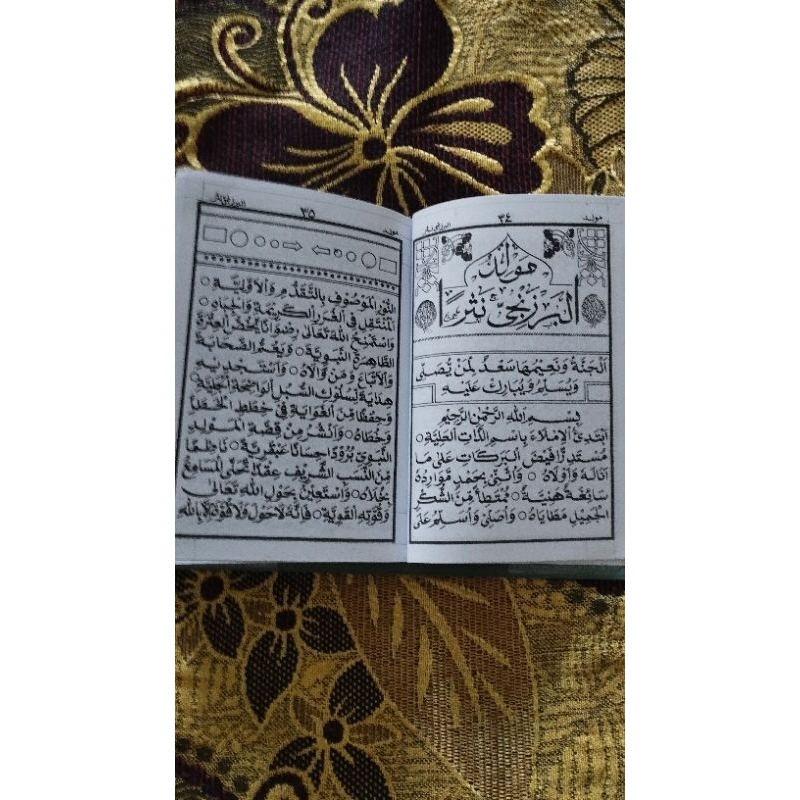 مولد
٣٤
البرزنجى نثر
مولد
البرزنجى نثرًا
اَلْجَنَّةُ وَنَعِيْمُهَا سَعْدٌ لِمَنْ يُصَلِّى
وَيُسَلِّمُ وَيُبَارِكُ عَلَيْهِ
بِسْمِ اللهِ الرَّحْمٰنِ الرَّحِيْمِ
اَبْتَدِئُ الْاِمْلَاءَ بِاسْمِ الذَّاتِ الْعَلِيَّةِ ۝
مُسْتَدِرًّا فَيْضَ الْبَرَكَاتِ عَلَى مَا
اَنَالَهُ وَاَوْلَاهُ ۝ وَاُثَنِّى بِحَمْدٍ مَوَارِدُهُ
سَائِغَةٌ هَنِيَّةٌ ۝ مُمْتَطِيًا مِنَ الشُّكْرِ
الْجَمِيْلِ مَطَايَاهُ ۝ وَاُصَلِّى وَاُسَلِّمُ عَلَى
مولد
٣٥
النُّوْرِ الْمَوْصُوْفِ بِالتَّقَدُّمِ وَالْاَوَّلِيَّةِ ۝
الْمُنْتَقِلِ فِى الْغُرَرِ الْكَرِيْمَةِ وَالْجِبَاهِ ۝
وَاَسْتَمْنِحُ اللهَ تَعَالَى رِضْوَانًا يَخُصُّ الْعِتْرَةَ
الطَّاهِرَةَ النَّبَوِيَّةَ ۝ وَيَعُمُّ الصَّحَابَةَ
وَالْاَتْبَاعَ وَمَنْ وَالَاهُ ۝ وَاَسْتَجْدِيْهِ
هِدَايَةً لِسُلُوْكِ السُّبُلِ الْوَاضِحَةِ الْجَلِيَّةِ
وَحِفْظًا مِنَ الْغَوَايَةِ فِى خِطَطِ الْخَطَاءِ
وَخُطَاهُ ۝ وَاَنْشُرُ مِنْ قِصَّةِ الْمَوْلِدِ
النَّبَوِيِّ بُرُوْدًا حِسَانًا عَبْقَرِيَّةً ۝ نَاظِمًا
مِنَ النَّسَبِ الشَّرِيْفِ عِقْدًا تُحَلَّى الْمَسَامِعُ
بِحُلَاهُ ۝ وَاَسْتَعِيْنُ بِحَوْلِ اللهِ تَعَالَى
وَقُوَّتِهِ الْقَوِيَّةِ ۝ فَاِنَّهُ لَاحَوْلَ وَلَا قُوَّةَ اِلَّا بِاللهِ